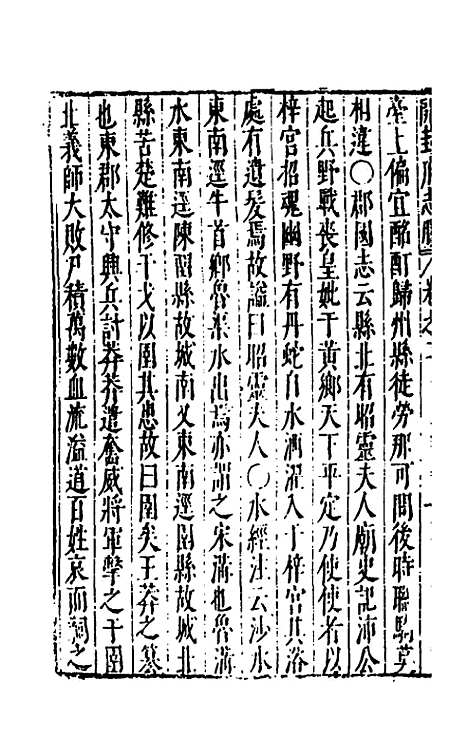 臺上偏宜酩酊歸州縣徒勞那可問後時聯騎莫
相違○郡國志云縣北有昭靈夫人廟史記沛公
起兵野戰喪皇妣于黃鄉天下平定乃使使者以
梓宮招魂幽野有丹蛇自水洒濯入于梓宮其浴
處有遺髮焉故謚曰昭靈夫人○水經注云沙水
東南逕牛首鄉魯渠水出焉亦謂之宋溝也魯溝
水東南逕陳留縣故城南又東南逕圉縣故城北
縣苦楚難修干戈以圉其患故曰圉矣王莽之篡
也東郡太守興兵討莽莽遣奮威將軍擊之于圉
北義師大敗尸積萬數血流溢道百姓哀而祠之